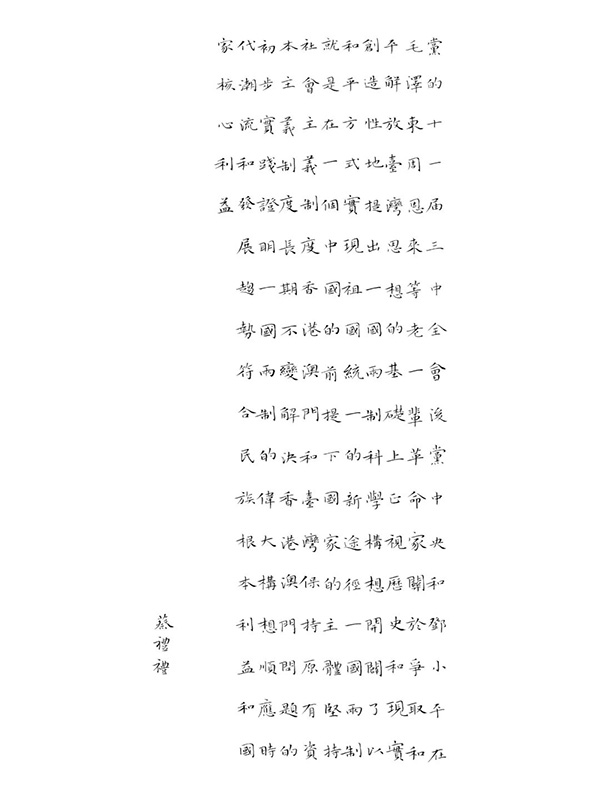 黨的十一届三中全會後黨中央和鄧小平在
毛澤東周恩來等老一輩革命家關於爭取和
平解放臺灣思想的基礎上正視歷史和現實
創造性地提出一國兩制科學構想開關了以
和平方式實現祖國統一的新途徑一國兩制
就是在一個中國的前提下國家的主體堅持
社會主義制度香港澳門和臺灣保持原有資
本主義制度長期不變解決香港澳門問題的
初步實踐證明一國兩制的偉大構想順應時
代潮流和發展趨勢符合民族根本利益和國
家核心利益
蔡禮禮